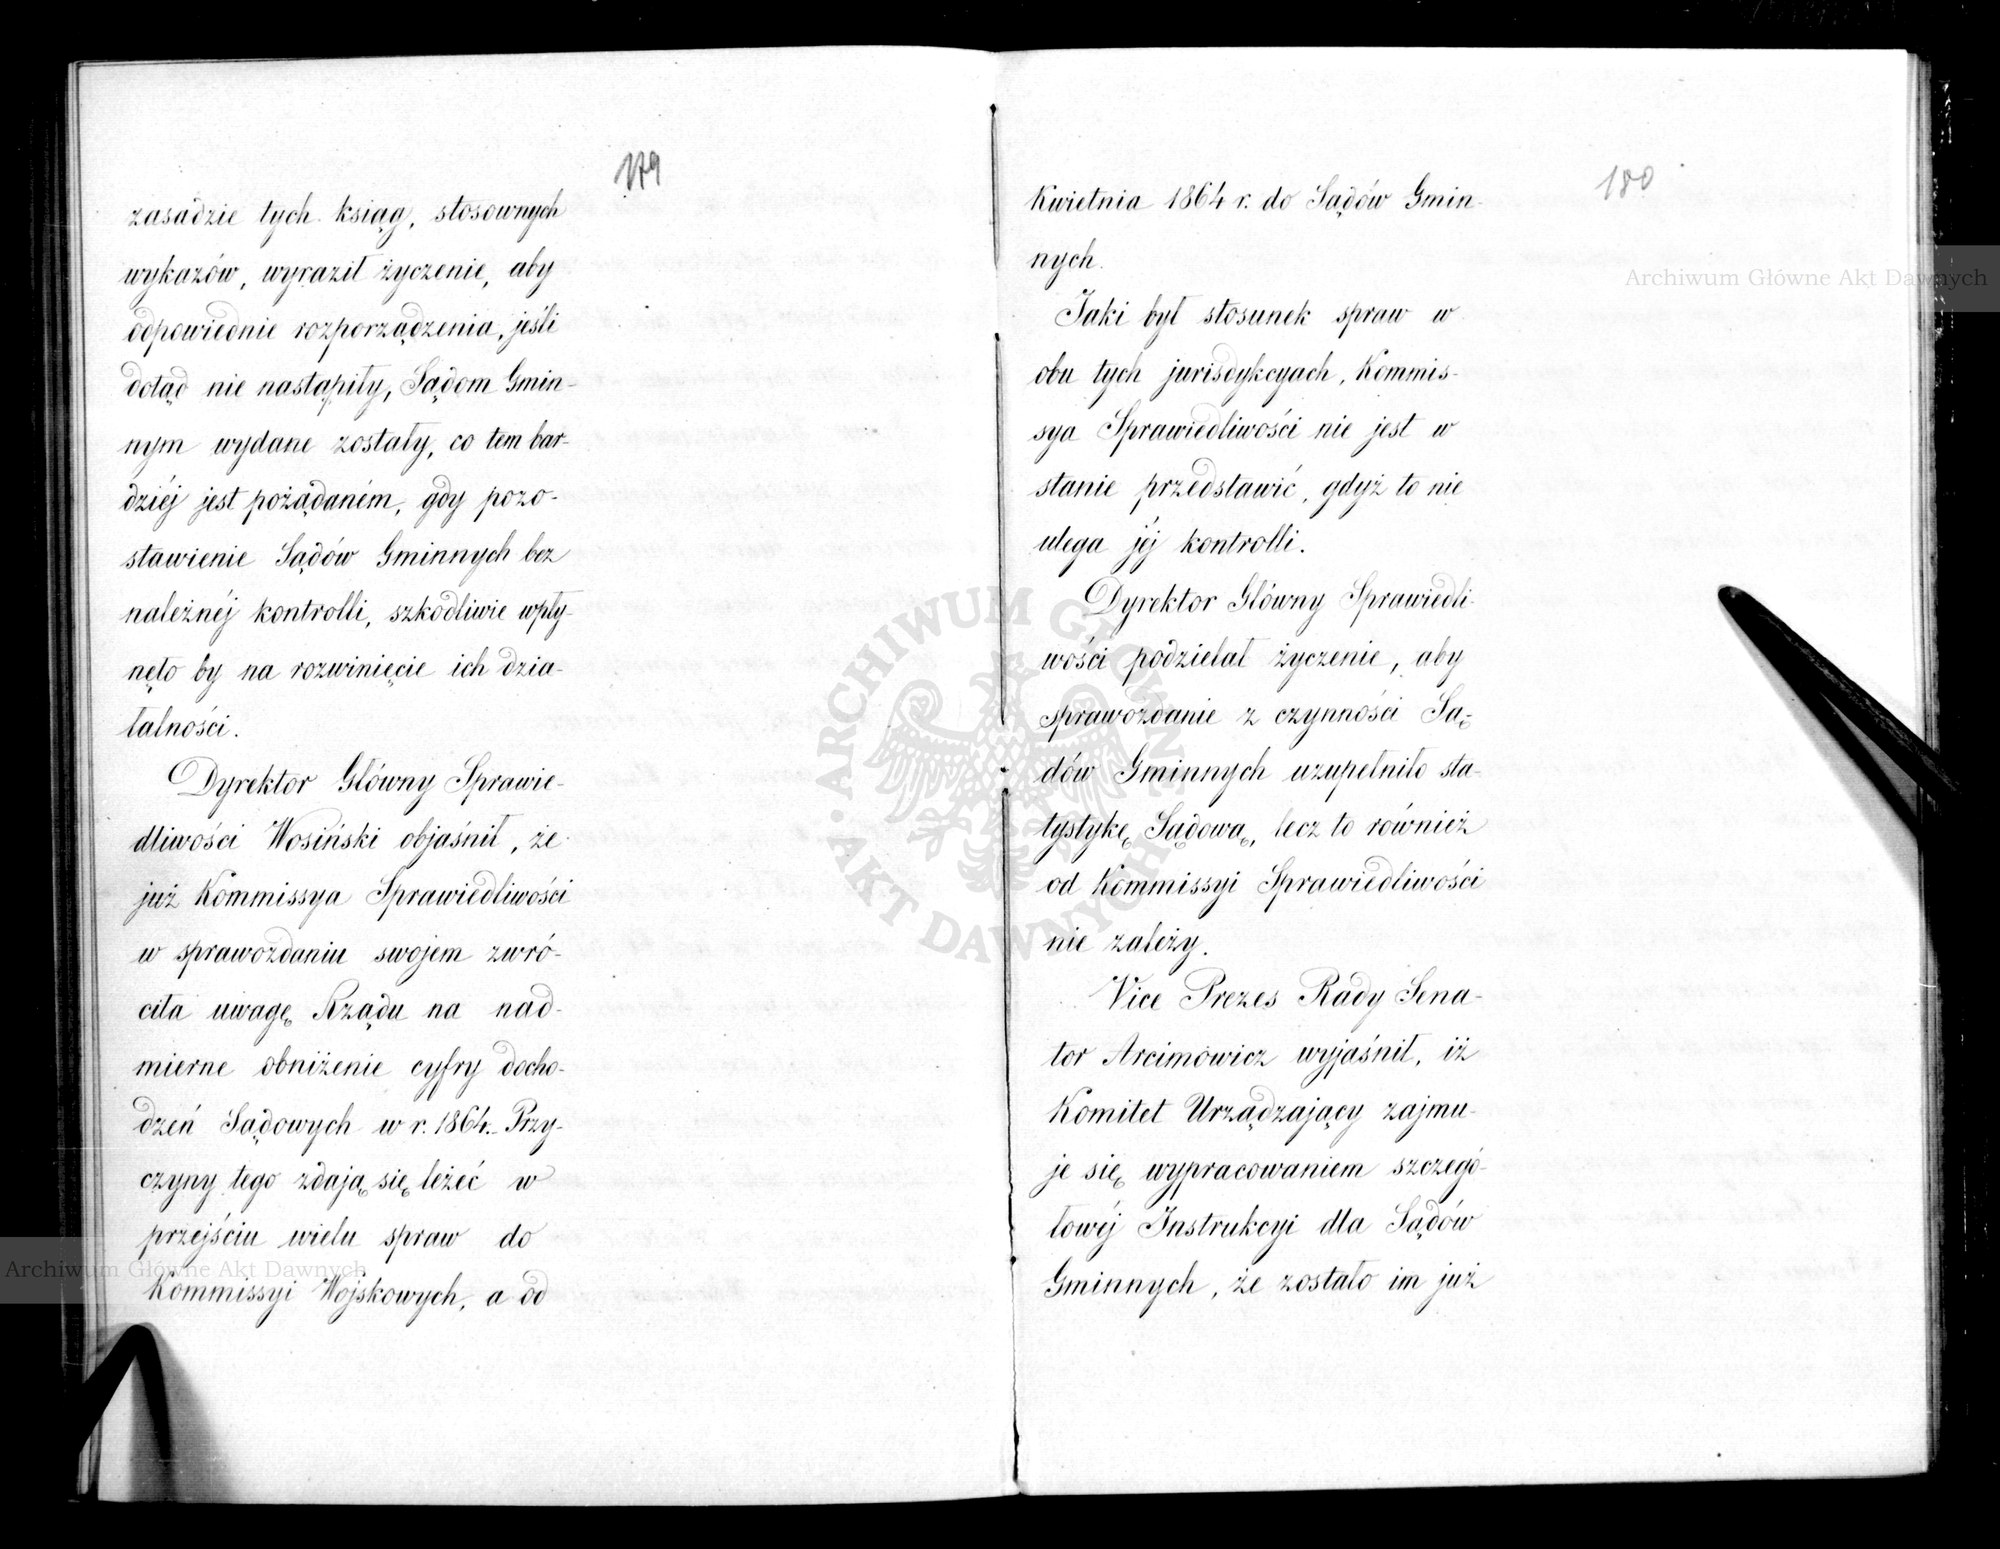 179
zasadzie tych ksiąg, stosownych
wykazów, wyraził życzenie, aby
odpowiednie rozporządzenia, jeśli
dotąd nie nastąpiły, Sądom Gmin-
nym wydane zostały, co tem bar-
dziéj jest pożądaném, gdy pozo-
stawienie Sądów Gminnych bez
należnéj kontrolli, szkodliwie wpły-
nęło by na rozwinięcie ich dzia-
łalności.
Dyrektor Główny Sprawie-
dliwości Wosiński objaśnił, że
już Kommissya Sprawiedliwości
w sprawozdaniu swojem zwró-
ciła uwagę Rządu na nad-
mierne obniżenie cyfry docho-
dzeń Sądowych w r. 1864. Przy-
czyny tego zdają się leżeć w
przejściu wielu spraw do
Kommissyi Wojskowych, a od
180
Kwietnia 1864 r. do Sądów Gmin-
nych.
Jaki był stosunek spraw w
obu tych jurisdykcyach, Kommis-
sya Sprawiedliwości nie jest w
stanie przedstawić, gdyż to nie
ulega jéj kontrolli.
Dyrektor Główny Sprawiedli-
wości podzielał życzenie, aby
sprawozdanie z czynności Są-
dów Gminnych uzupełniło sta-
tystykę Sądową, lecz to również
od Kommissyi Sprawiedliwości
nie zależy.
Vice Prezes Rady Sena-
tor Arcimowicz wyjaśnił, iż
Komitet Urządzający zajmu-
je się wypracowaniem szczegó-
łowéj Instrukcyi dla Sądów
Gminnych, że zostało im już
Archiwum Główne Akt Dawnych
Archiwum Główne Akt Dawnych
ARCHIWUM GŁÓWNE AKT DAWNYCH